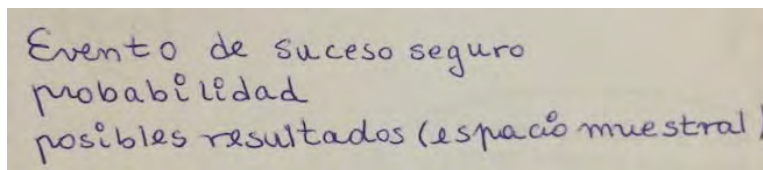 Evento de suceso seguro
probabilidad
posibles resultados (espacio muestral)